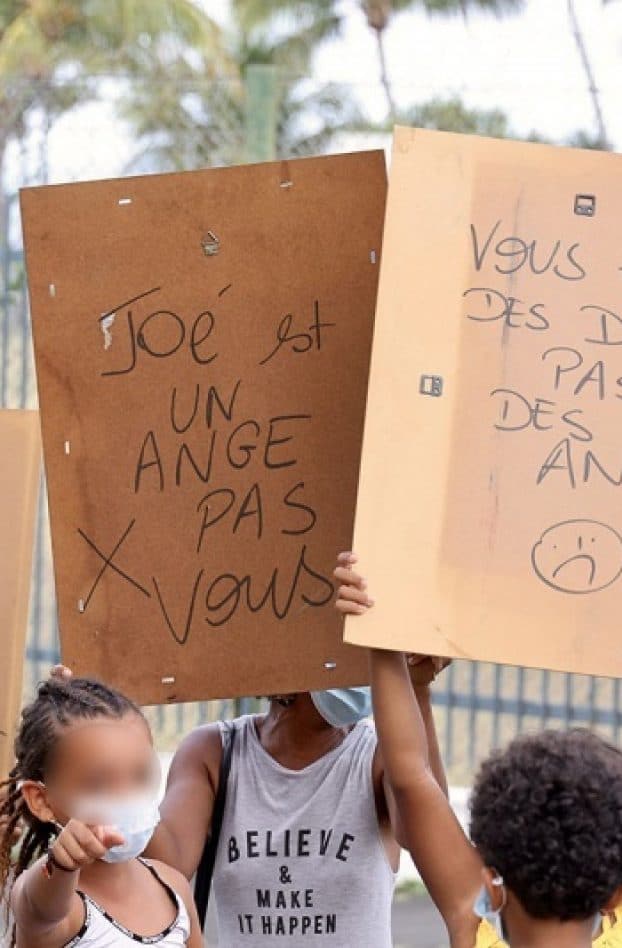 Joé est
UN
ANGE
PAS
X Vous
Vous
DES D
PAS
DES
AN
BELIEVE
&
MAKE
IT HAPPEN